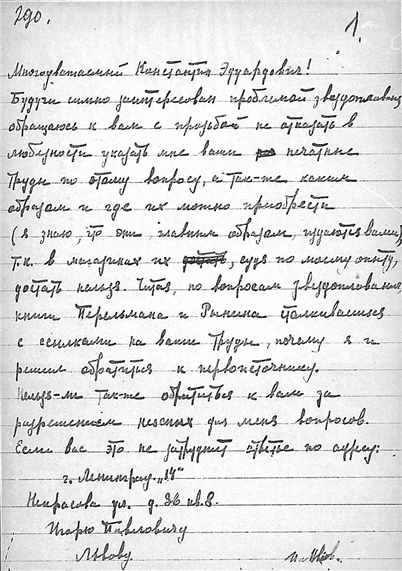 290.
1.
Многоуважаемый Константин Эдуардович!
Будучи сильно заинтересован проблемой звездоплавания
обращаюсь к вам с просьбой не отказать в
любезности указать мне ваши печатные
труды по этому вопросу, а так-же каким
образом и где их можно приобрести
(я знаю, что они главным образом, издаются вами),
т.к. в магазинах их достать, судя по моему опыту,
достать нельзя. Читая, по вопросам звездоплавания,
книги Перельмана и Рынина сталкиваешься
с ссылками на ваши труды, почему я и
решил обратиться к первоисточнику.
Нельзя-ли так-же обратиться к вам за
разрешением неясных для меня вопросов.
Если вас это не затруднит ответьте по адресу:
г. Ленинград „14"
Некрасова ул. д. 36 кв. 8.
Игорю Павловичу
Львову
И. Львов.